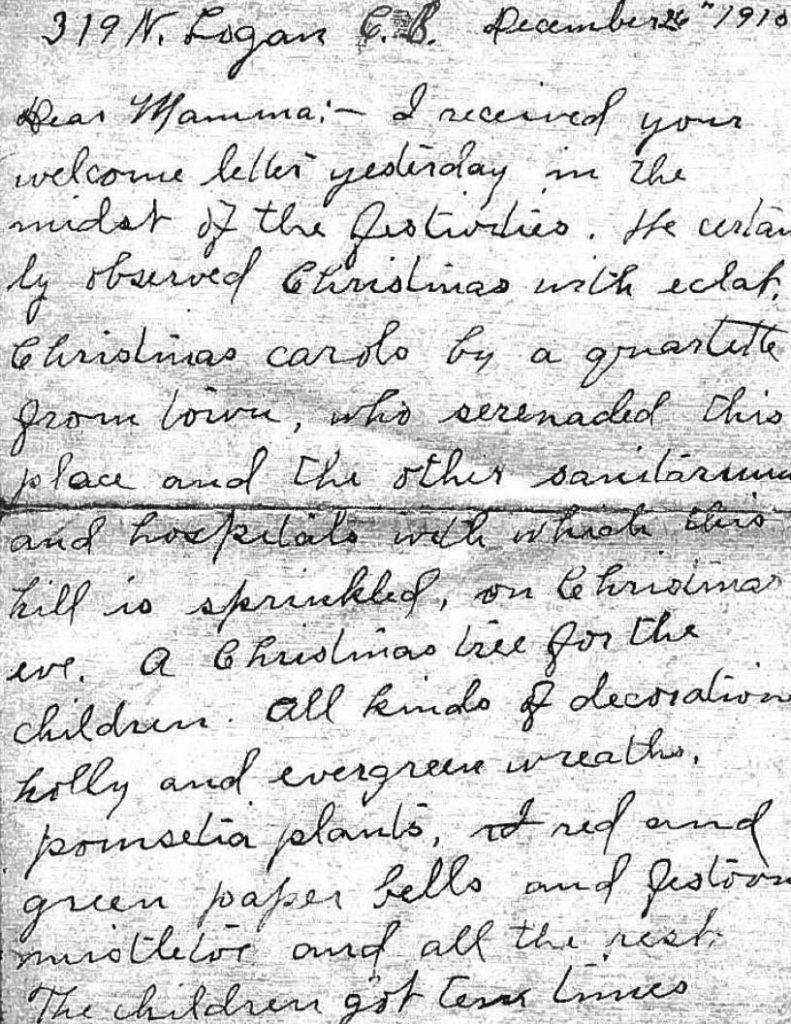 319 N. Logan C. B. December 26" 1910
Dear Mamma:— I received your
welcome letter yesterday in the
midst of the festivities. We certain
ly observed Christmas with eclat.
Christmas carols by a quartette
from town, who serenaded this
place and the other sanitariums
and hospitals with which this
hill is sprinkled, on Christmas
eve. A Christmas tree for the
children. All kinds of decorations
holly and evergreen wreaths,
poinsetia plants, red and
green paper bells and festoons
mistletoe and all the rest.
The children got ten times